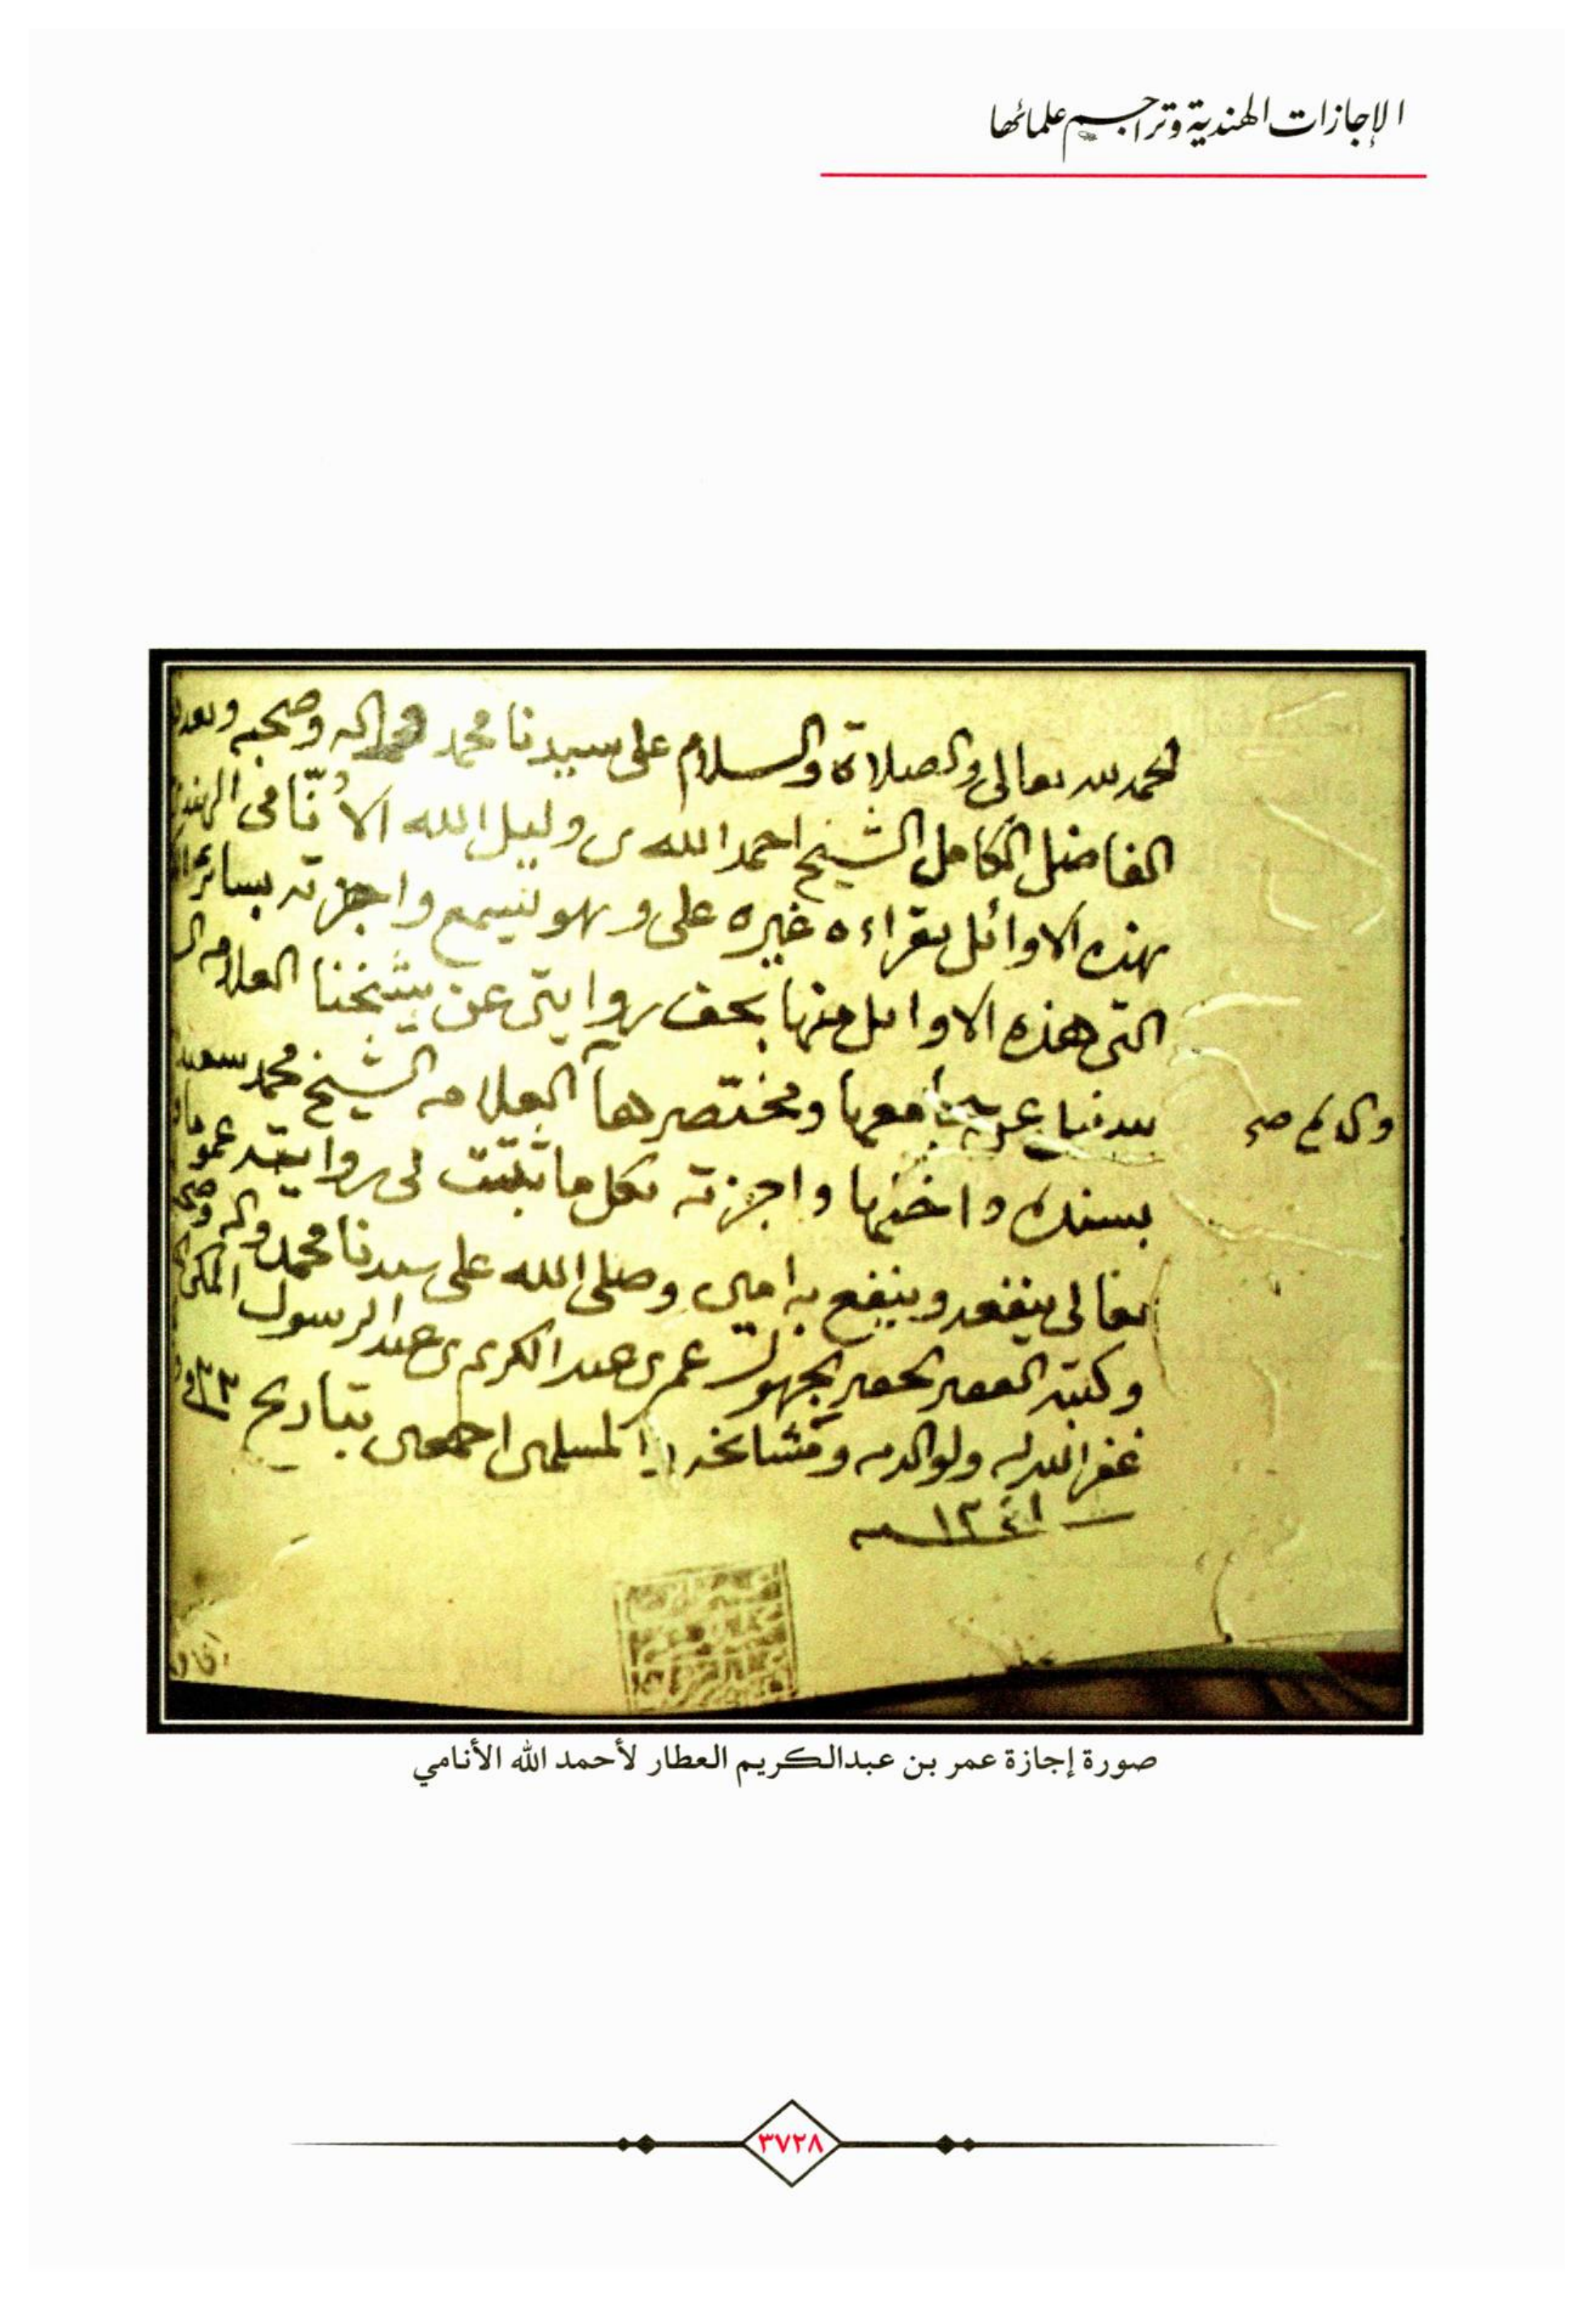 الإجازات الهندية وتراجم علمائها
الحمد لله تعالى والصلاة والسلام على سيدنا محمد واله وصحبه وبعد
الفاضل الكامل الشيخ احمد الله بن وليل الله الأنّامى الهندي
بهذه الاوائل بقراءه غيره على وهو يسمع واجزته بسائر
التى هذه الاوائل منها بحق روايتى عن شيخنا العلامه
سيدنا عن جامعها ومختصرها العلامه الشيخ محمد سعيد
والدي صح
بسنده واجزته بكل ما تثبت لى روايته
تعالى ينفعه وينفع به امين وصلى الله على سيدنا محمد واله
وكتبه الفقير الحقير عمر بن عبد الكريم بن عبد الرسول المكى
غفر الله له ولوالديه ومشايخه المسلمين اجمعين بتاريخ ٢٣
١٢٤١
صورة إجازة عمر بن عبدالكريم العطار لأحمد الله الأنامي
٣٧٢٨